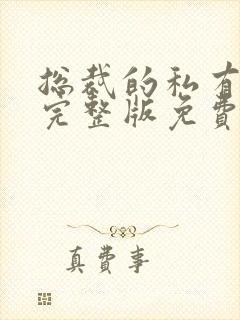 总裁的私有
完整版免費
真費事